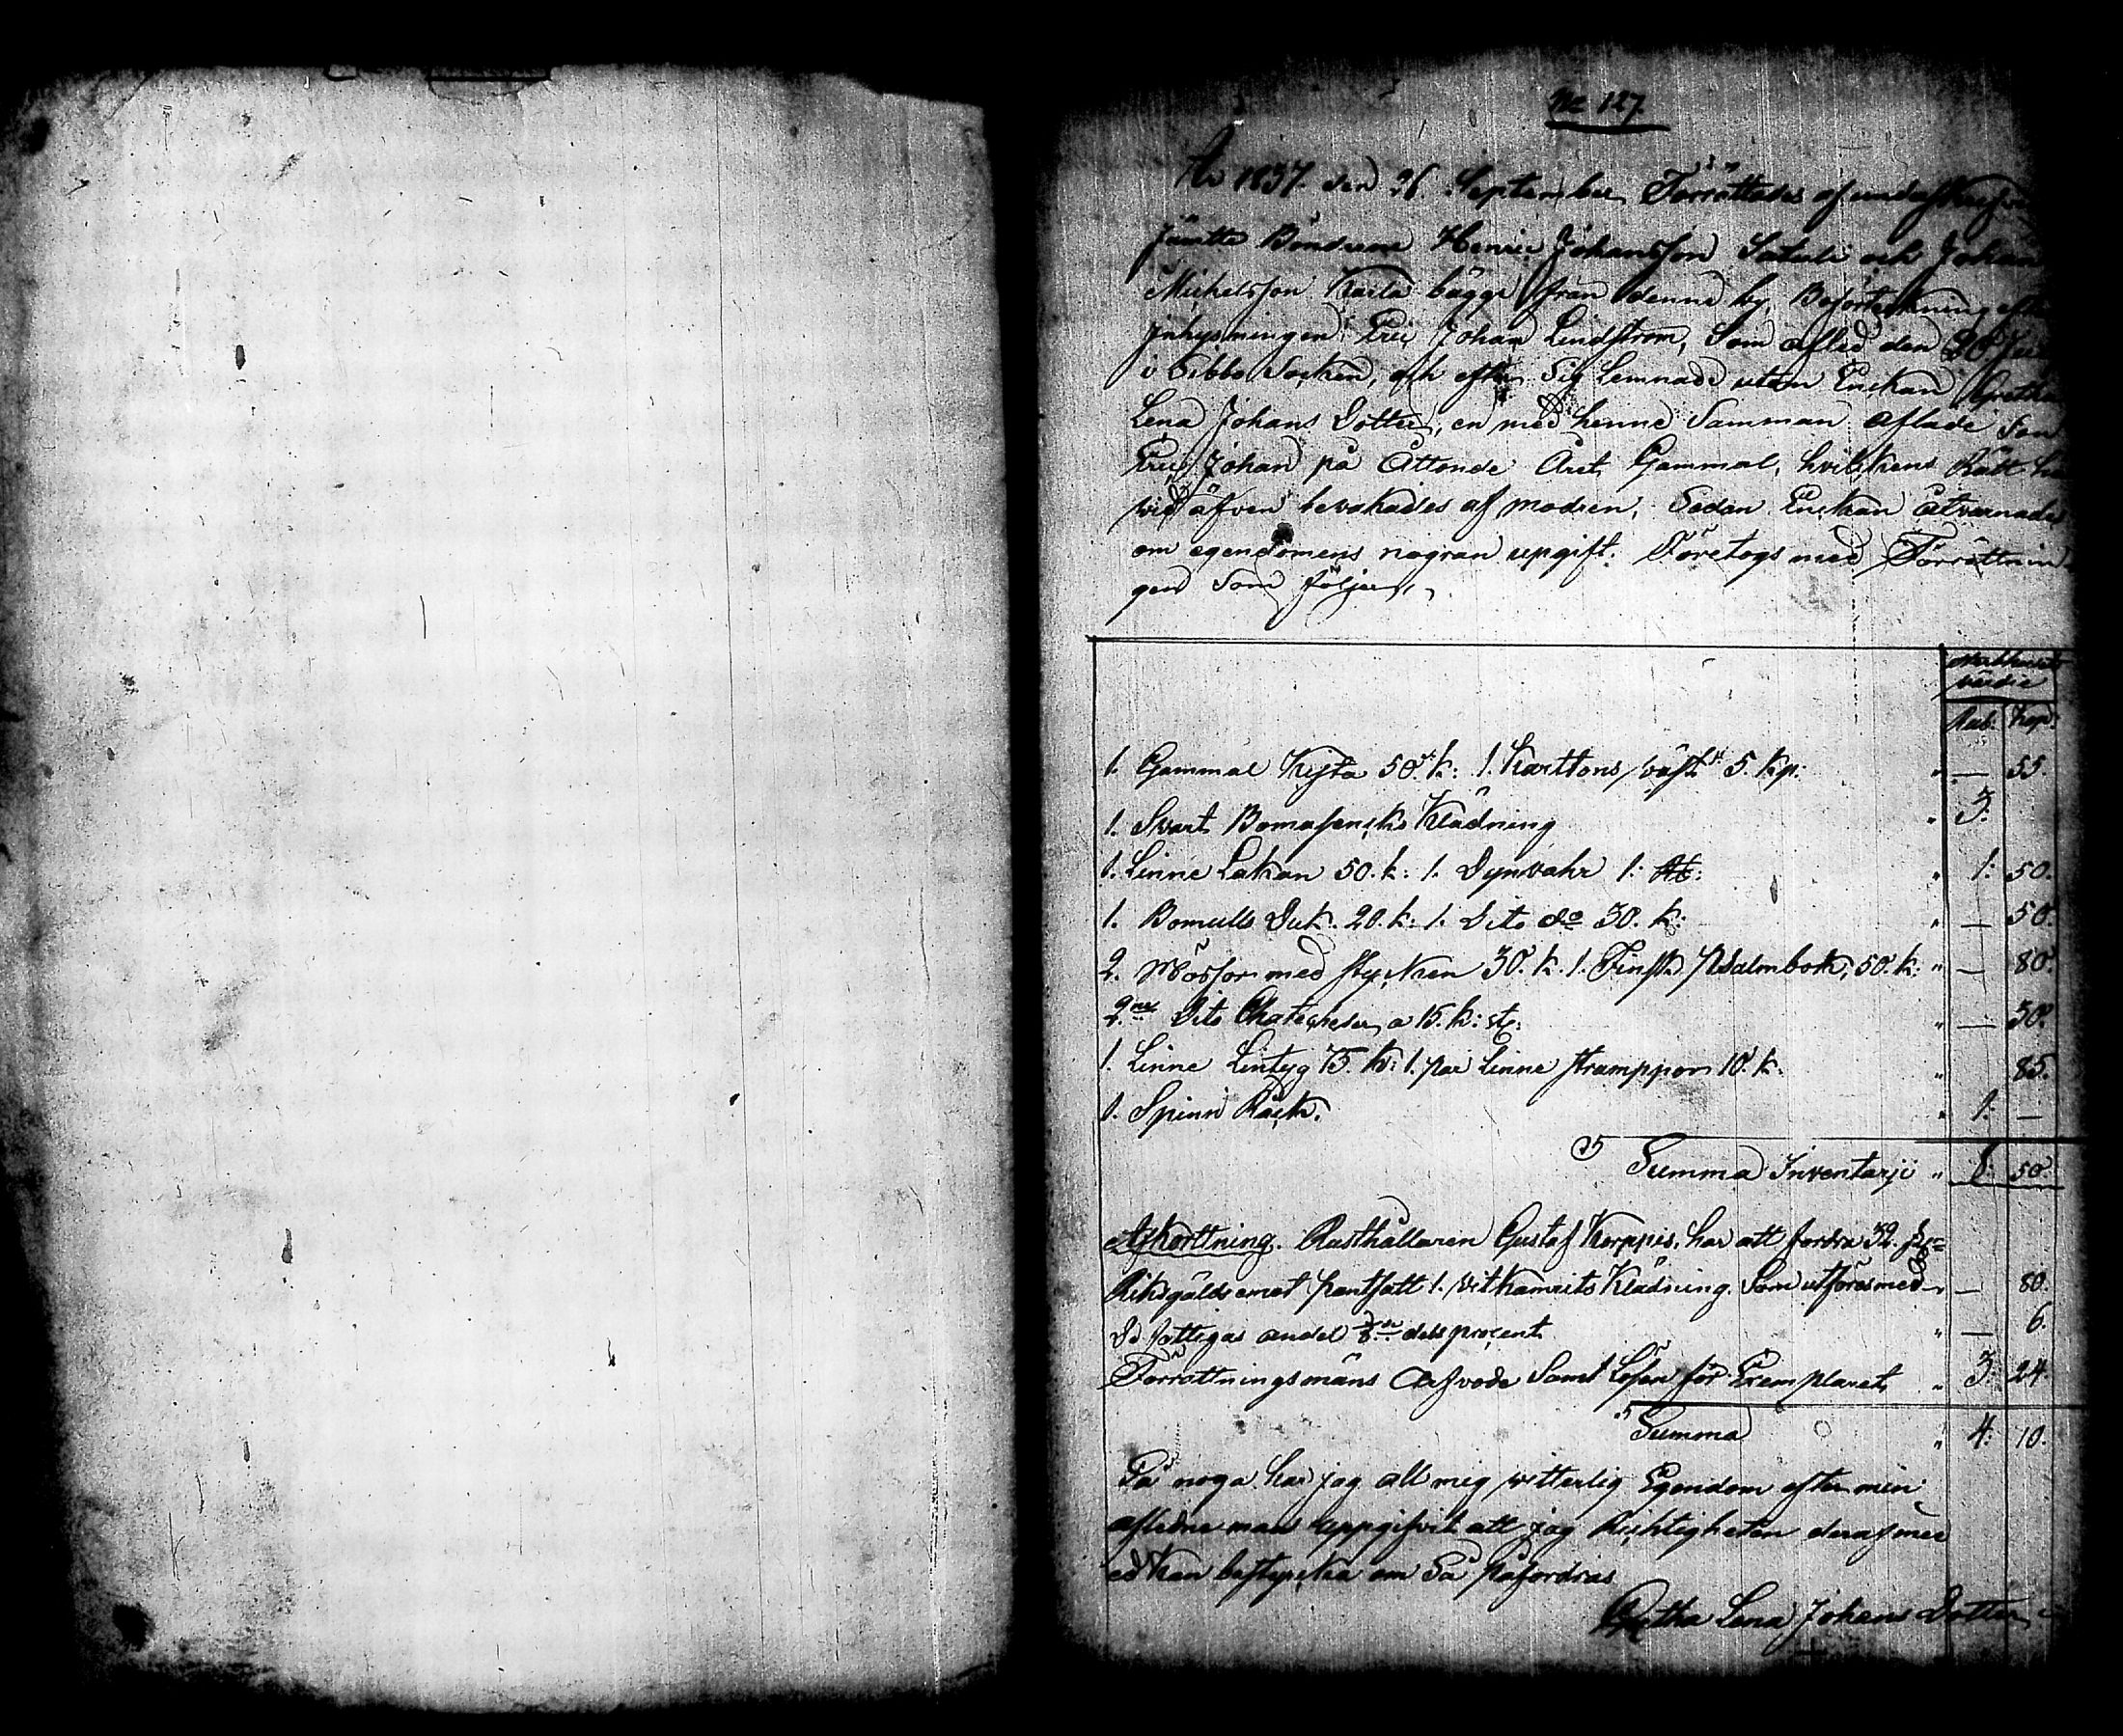 No 127
År 1837. den 26. September Förrättades af undeskrefven
jämte Bönderne Henric Johansson Satuli och Johan
Michelsson Kaila bägge från denne by, Boförteckning efter
Inhysningen Eric Johan Lindström, Som afled den
i Sibbo Socken, och efter Sig Lemnade utom Enckan Gretha
Lena Johans Dotter, en med henne Samman aflade Son
Eric Johan på Åttonde Året Gammal, hvilckens Rätt här
wid äfven bevakades af modren, Sedan Enckan åtvarnades
om egendomens nogran upgift. Företogs med Förrättnin
gen Som följer,
värdie
Rub. Kop.
1. Gammal Kista 50. k: 1. Karttons väst 5. kp: " — 55.
1. Svart Bomasencks Klädning " 3.
1. Linne Lakan 50. k: 1. Dynvahr 1. Rb: " 1: 50.
1. Bomulls Duk. 20. k: 1. Dito do 30. k: " — 50.
2. Mössor med stycken 30. k. 1. Finsk Psalmbok, 50. k: " — 80.
2ne Dito Chateqveser a 15. k: st: " — 30.
1. Linne Lintyg 75. k: 1. par Linne strumppor 10. k. " 85.
1. Spinn Råck. " 1: —
Summa Inventarji " 8: 50
Afkorttning. Rusthållaren Gustaf Korppis, har att fordra 32. s
Riksgälds emot pantsatt 1. vitkamrits Klädning. Som utföres med " — 80.
De fattigas andel 1/8 dels procent " — 6.
Förrättningsmäns Arfvode Samt Lösen för Exemplaret " 3: 24.
Summa " 4: 10.
Så noga har jag all mig witterlig Egendom efter min
afledne man uppgifvit att jag Ricktigheten deraf med
ed kan bestyrcka om Så påfordras
Gretha Lena Johans Dotter